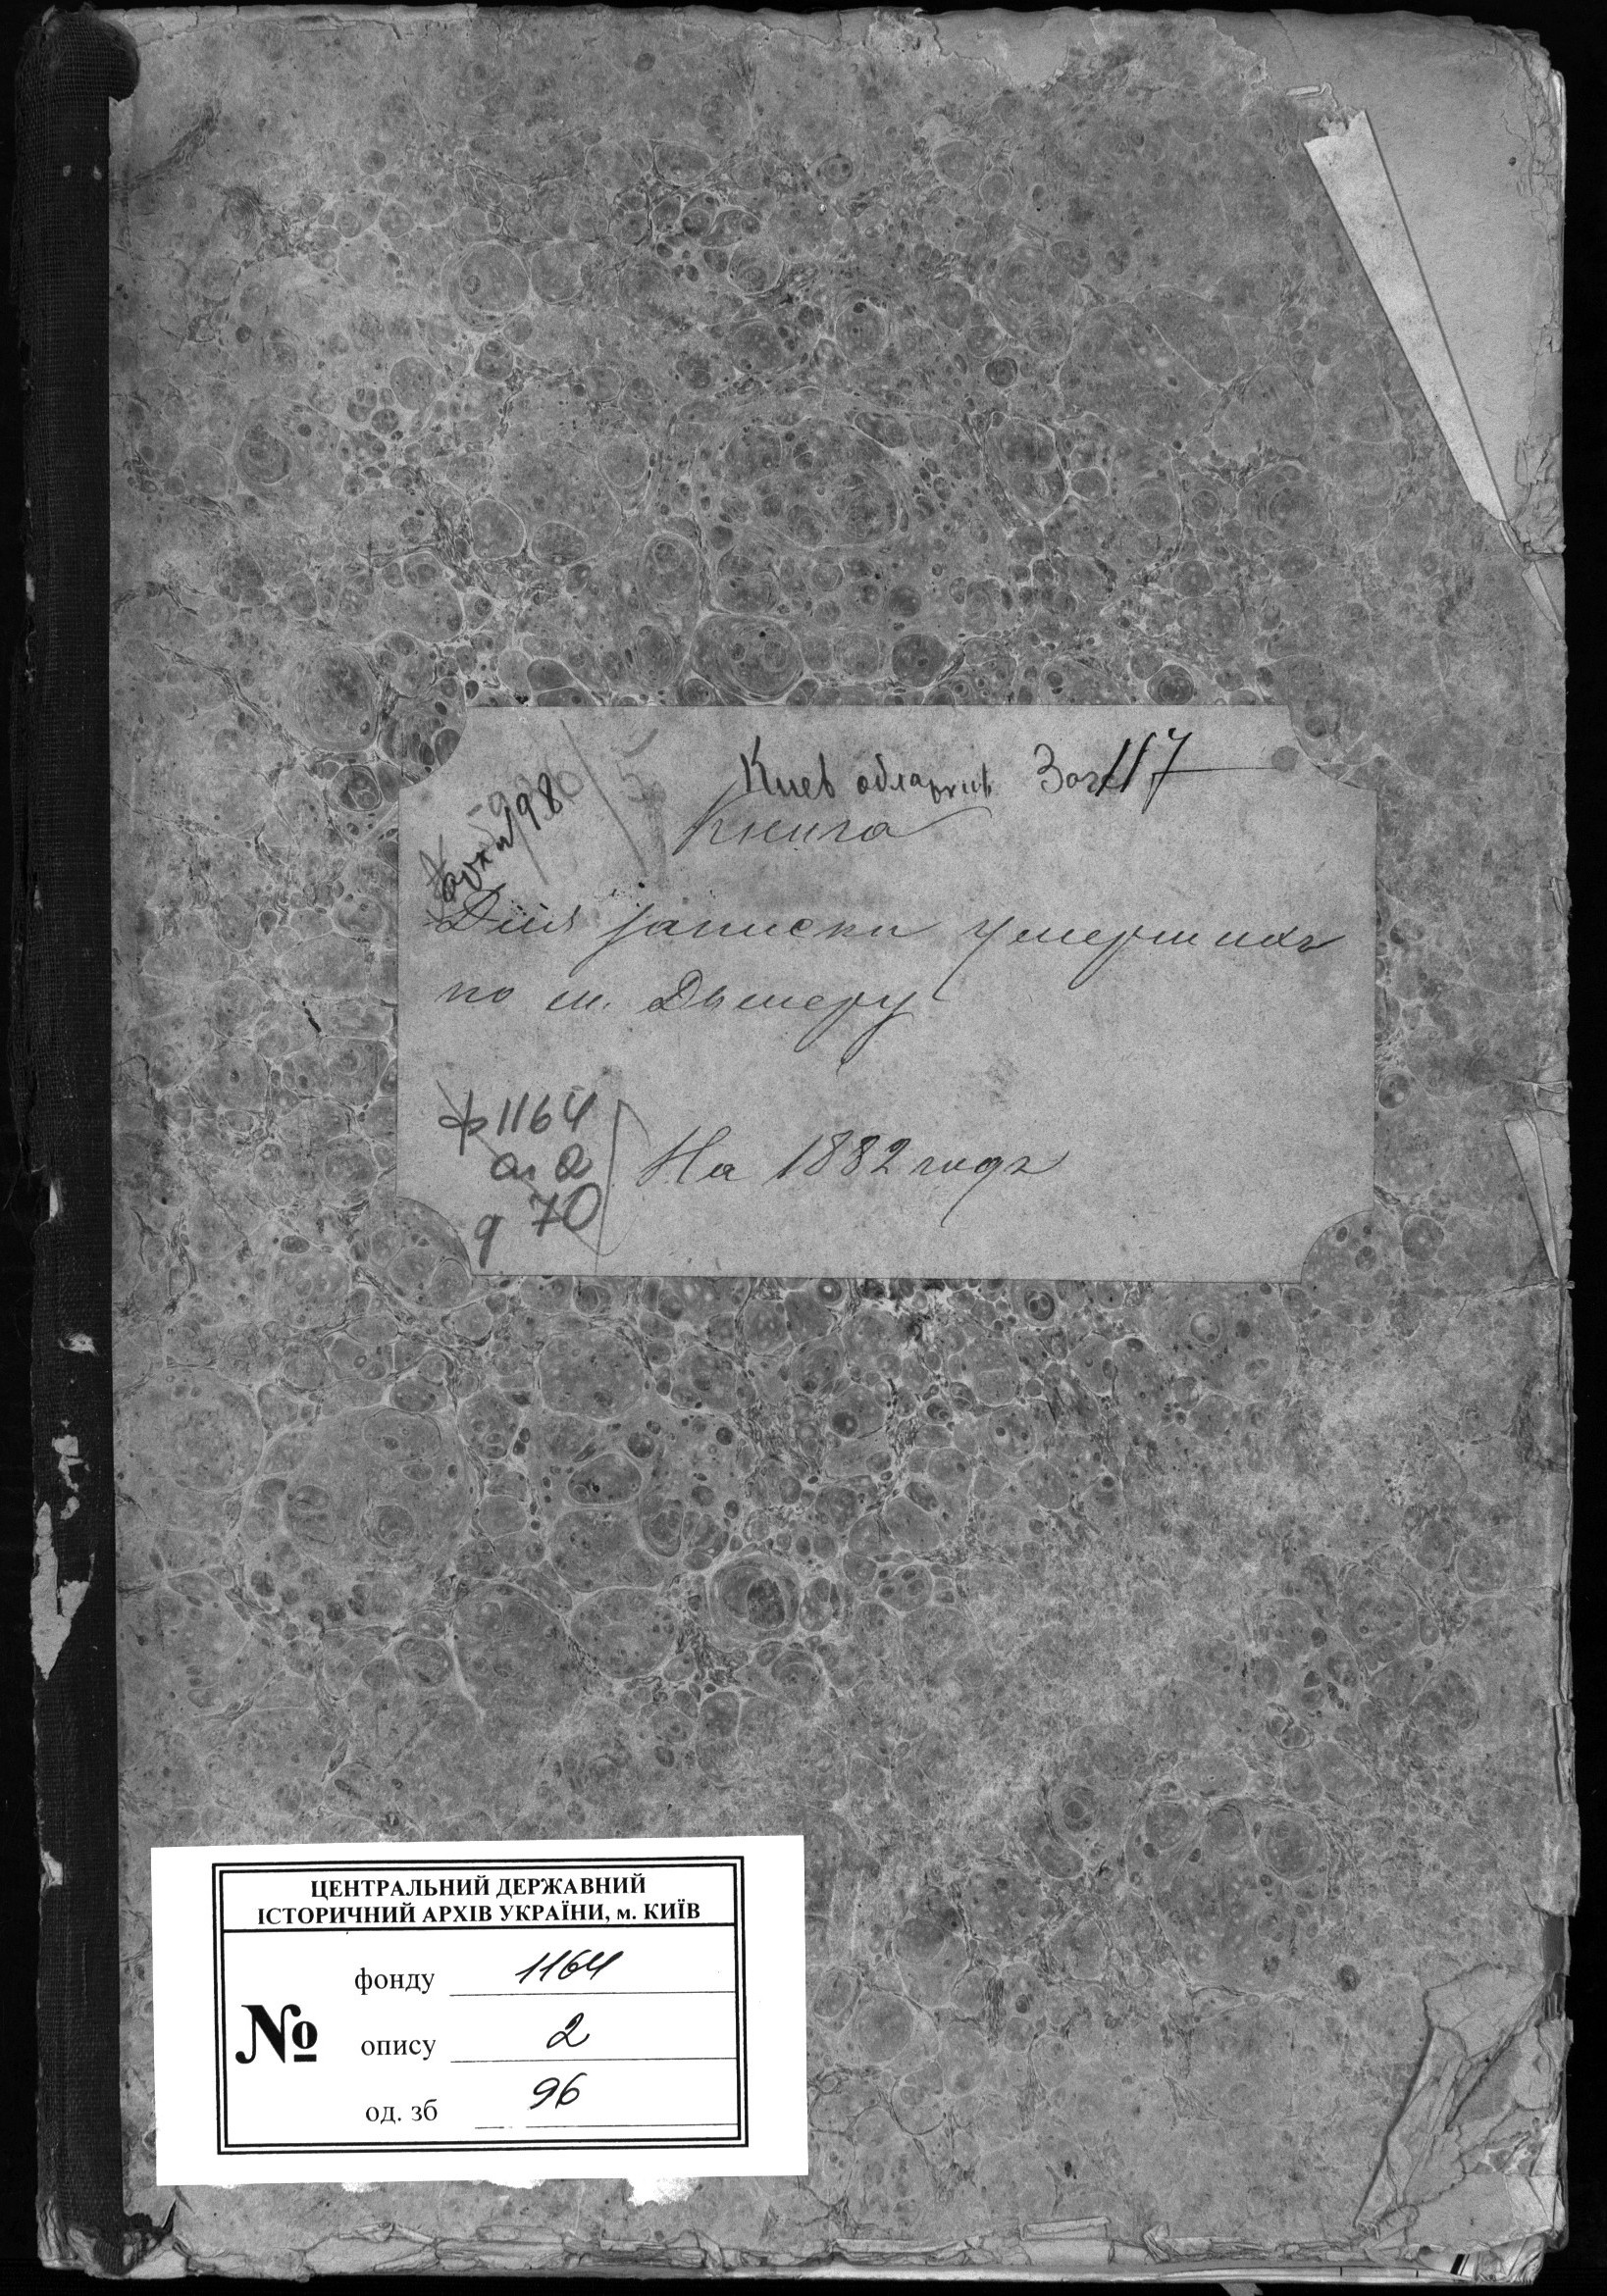 Киев облархив Заг 117
Книга
Для записки умершихъ
по м. Дымеру
ф 1164
оп 2
д 70
На 1882 годъ
ЦЕНТРАЛЬНИЙ ДЕРЖАВНИЙ
ІСТОРИЧНИЙ АРХІВ УКРАЇНИ, м. КИЇВ
№
фонду 1164
опису 2
од. зб 96